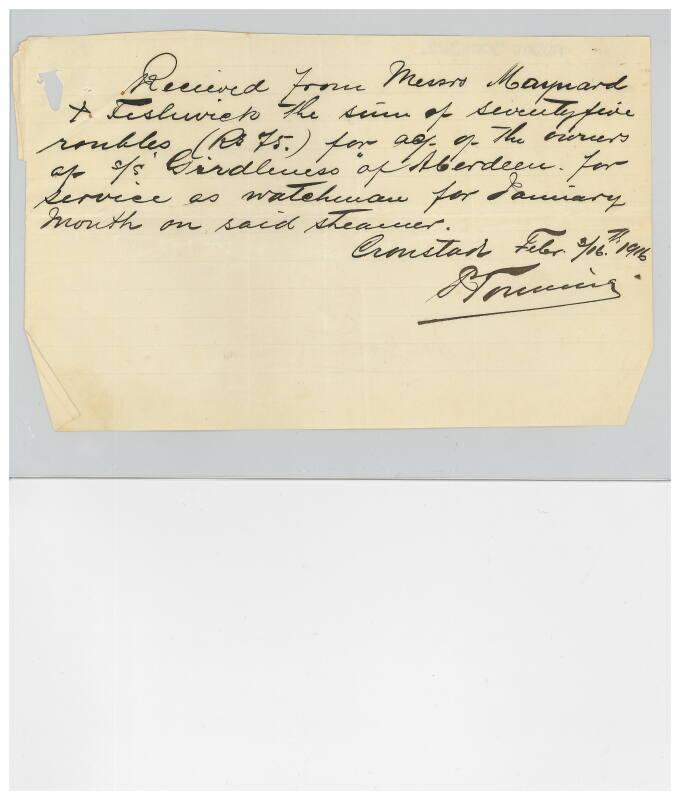 Recieved from Messrs Maynard
& Fishwick the sum of seventyfive
roubles (Rs 75.) for a/c of the owners
of s/s "Girdleness" of Aberdeen. for
service as watchman for January
Month on said steamer.
Cronstad Febr. 3/16.th 1916